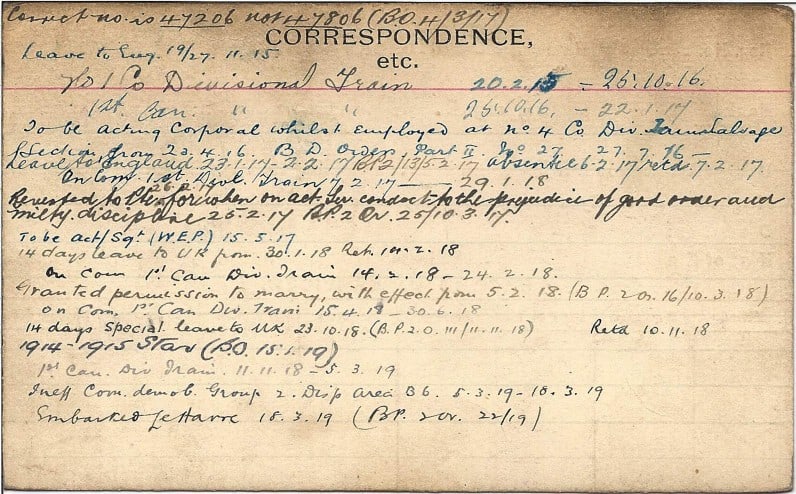 Correct no. is 47206 not 47806 (B.O. 4/3/17)
CORRESPONDENCE,
etc.
Leave to Eng. 19/27.11.15
No 1 Co Divisional Train 20.2.15 - 25.10.16.
1st. Can. " " 25.10.16. - 22.1.17
To be acting Corporal whilst Employed at No. 4 Co. Div. Train Salvage
Section from 23.4.16 B D. Orders, Part II No 27 27.7.16 -
Leave to England 23.1.17 - 2.2.17 BP2/13/5.2.17 absence 6.2.17 retd. 7.2.17.
On Com. 1st. Divl. Train 7.2.17 - 29.1.18
Reverted to Pte for when on act. Ser. conduct to the prejudice of good order and
milty. discipline 25.2.17 B.P.2 Or. 25/10.3.17.
To be act/Sgt (W.E.P.) 15.5.17
14 days leave to UK from 30.1.18 Ret. 14.2.18
On Com 1st Can Div. Train 14.2.18 - 24.2.18.
Granted permission to marry, with effect from 5.2.18. (B P. 2 Or. 16/10.3.18)
on Com. 1st Can Div. Train 15.4.18 - 30.6.18
14 days special leave to UK 23.10.18. (B.P.2.O. 111/11.11.18) Retd 10.11.18
1914-1915 Star (B.O. 15.1.19)
1st Can. Div Train. 11.11.18 - 5.3.19
Ineff Com. demob. Group 2. Disp area B6. 5.3.19 - 18.3.19
Embarked Le Havre 18.3.19 (B.P. 2 Or. 22/19)